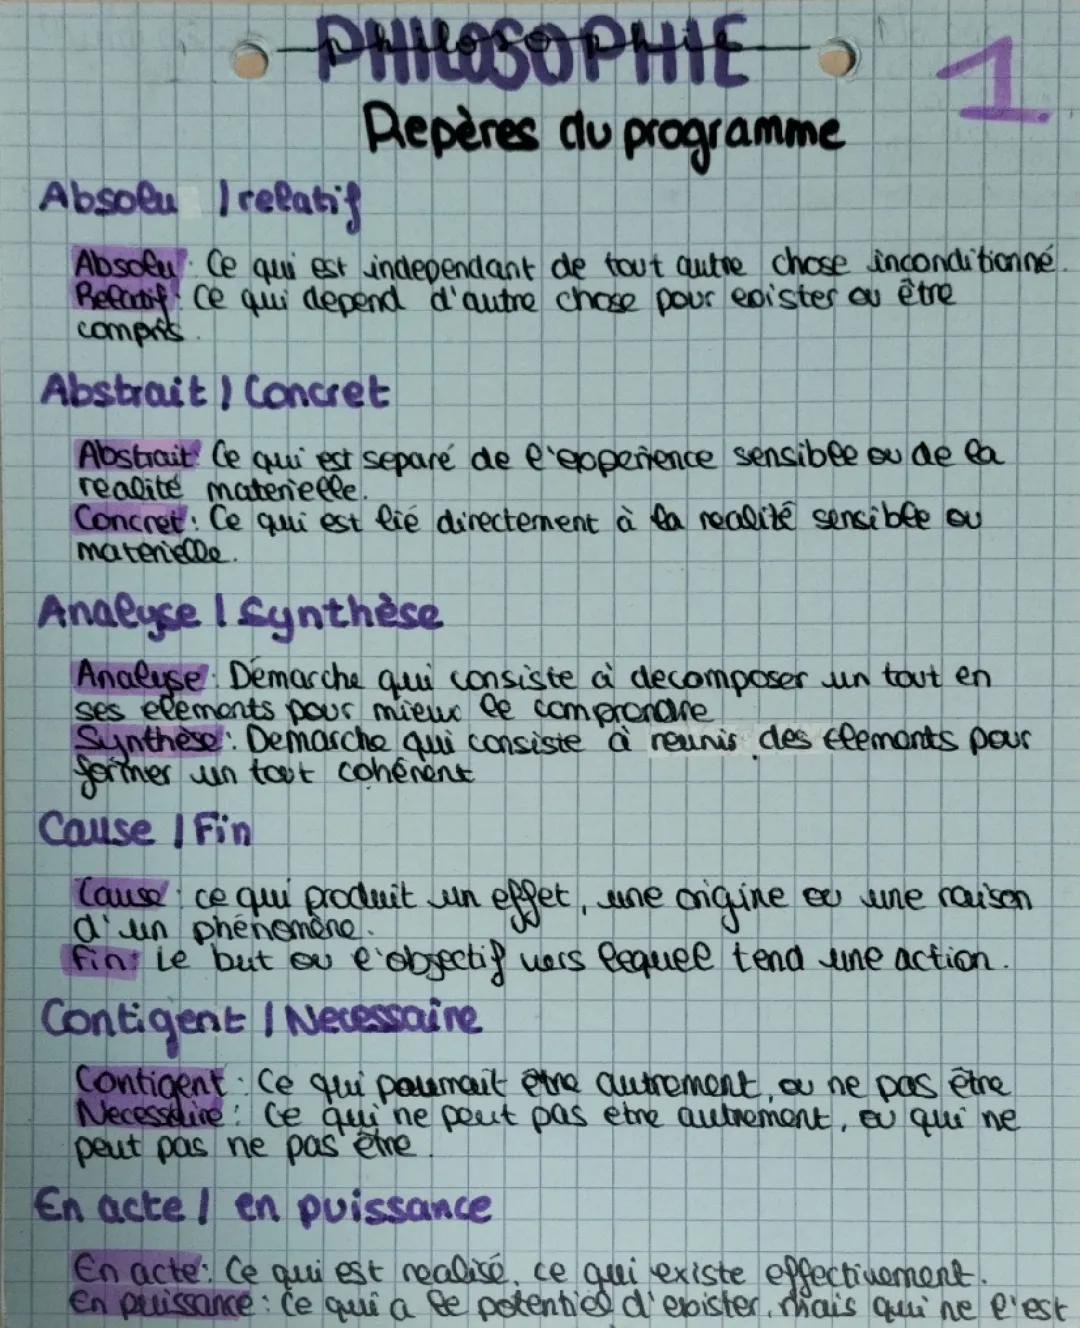 PHILOSOPHIE
1.
Repères du programme
Absolu | relatif
Absolu : Ce qui est independant de tout autre chose inconditionné.
Relatif : Ce qui depend d'autre chose pour exister ou être
compris.
Abstrait | Concret
Abstrait : Ce qui est separé de l'experience sensible ou de la
realité materielle.
Concret : Ce qui est lié directement à la realité sensible ou
materielle.
Analyse | Synthèse
Analyse : Démarche qui consiste à decomposer un tout en
ses elements pour mieux le comprendre
Synthèse : Demarche qui consiste à reunir des elements pour
former un tout cohérent
Cause | Fin
Cause : ce qui produit un effet, une origine ou une raison
d'un phénomène.
Fin : Le but ou l'objectif vers lequel tend une action.
Contigent | Necessaire
Contigent : Ce qui pourrait être autrement, ou ne pas être
Necessaire : Ce qui ne peut pas etre autrement, ou qui ne
peut pas ne pas être.
En acte | en puissance
En acte : Ce qui est realisé, ce qui existe effectivement.
En puissance : Ce qui a le potentiel d'exister, mais qui ne l'est